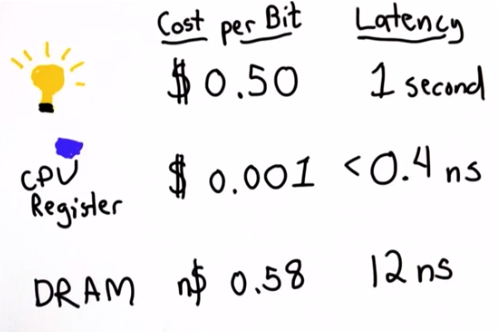 Cost per Bit Latency
$ 0.50 1 second
CPU
Register $ 0.001 <0.4 ns
DRAM n$ 0.58 12 ns